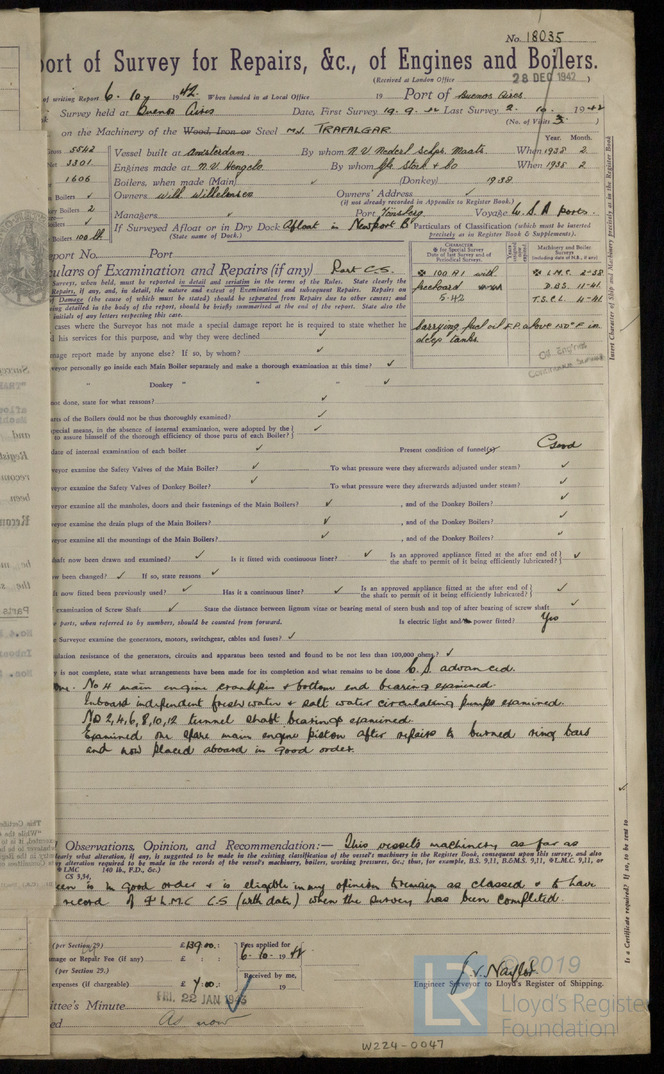 No. 18035
ort of Survey for Repairs, &c., of Engines and Boilers.
(Received at London Office 28 DEC 1942 )
of writing Report 6. 10 1942 When handed in at Local Office 19 Port of Buenos Aires
Survey held at Buenos Aires Date, First Survey 19. 9. 42 Last Survey 2. 10. 1942
(No. of Visits 3. )
on the Machinery of the Wood, Iron or Steel m.v. TRAFALGAR
Gross 5542 Vessel built at Amsterdam. By whom N.V. Nederl. Schps. Maats. When 1938 Year. 2. Month.
Net 3301 Engines made at N.V. Hengelo. By whom Gbr Stork & Co When 1938 2
1606 Boilers, when made (Main) ✓ (Donkey) 1938
Boilers ✓ Owners Wilh. Wilhelmsen Owners' Address ✓
(if not already recorded in Appendix to Register Book.)
ry Boilers 2 Managers ✓ Port Tönsberg. Voyage U.S.A ports.
Boilers 100 lb If Surveyed Afloat or in Dry Dock Afloat in Newport
(State name of Dock.)
Particulars of Classification (which must be inserted precisely as in Register Book & Supplements).
port No. Port
ulars of Examination and Repairs (if any) Part C.S.
CHARACTER
for Special Survey
Date of last Survey and of Periodical Surveys.
Machinery and Boiler Surveys
(including date of N.B., if any)
✠ 100 A1 with freeboard
5.42
✠ L.M.C. 2-38
D.B.S. 11-41
T.S.C.L. 4-41
carrying fuel oil F.P. above 150°F in deep tanks.
Oil Engines
Continuous Survey
Surveys, when held, must be reported in detail and seriatim in the terms of Rules. State clearly the
Repairs, if any, and, in detail, the nature and extent of Examinations and subsequent Repairs. Repairs on
Damage (the cause of which must be stated) should be separated from Repairs due to other causes; and
ing detailed in the body of the report, should be briefly summarised at the end of report. State also the
initials of any letters respecting this case.
cases where the Surveyor has not made a special damage report he is required to state whether he
d his services for this purpose, and why they were declined ✓
mage report made by anyone else? If so, by whom? ✓
veyor personally go inside each Main Boiler separately and make a thorough examination at this time? ✓
" Donkey " " " ✓
not done, state for what reasons? ✓
rts of the Boilers could not be thus thoroughly examined? ✓
pecial means, in the absence of internal examination, were adopted by the
to assure himself of the thorough efficiency of those parts of each Boiler? ✓
date of internal examination of each boiler ✓ Present condition of funnel(s) Good
veyor examine the Safety Valves of the Main Boiler? ✓ To what pressure were they afterwards adjusted under steam? ✓
veyor examine the Safety Valves of Donkey Boiler? ✓ To what pressure were they afterwards adjusted under steam? ✓
veyor examine all the manholes, doors and their fastenings of the Main Boilers? ✓ , and of the Donkey Boilers? ✓
veyor examine the drain plugs of the Main Boilers? ✓ , and of the Donkey Boilers? ✓
veyor examine all the mountings of the Main Boilers? ✓ , and of the Donkey Boilers? ✓
haft now been drawn and examined? ✓ Is it fitted with continuous liner? ✓ Is an approved appliance fitted at the after end of the shaft to permit of it being efficiently lubricated? ✓
been changed? ✓ If so, state reasons ✓
t now fitted been previously used? ✓ Has it a continuous liner? ✓ Is an approved appliance fitted at the after end of the shaft to permit of it being efficiently lubricated? ✓
examination of Screw Shaft ✓ State the distance between lignum vitae or bearing metal of stern bush and top of after bearing of screw shaft ✓
parts, when referred to by numbers, should be counted from forward. Is electric light and/or power fitted? Yes
e Surveyor examine the generators, motors, switchgear, cables and fuses? ✓
ulation resistance of the generators, circuits and apparatus been tested and found to be not less than 100,000 ohms? ✓
y is not complete, state what arrangements have been made for its completion and what remains to be done C.S. advanced.
No 4 main engine crankpin & bottom end bearing examined.
Inboard independent fresh water & salt water circulating pumps examined.
No 2,4,6,8,10,12 tunnel shaft bearings examined.
Examined one spare main engine piston after repairs to burned ring bars
and now placed aboard in good order.
Observations, Opinion, and Recommendation:— This vessel's machinery as far as
learly what alteration, if any, is suggested to be made in the existing classification of the vessel's machinery in the Register Book, consequent upon this survey, and also
ny alteration required to be made in the records of the vessel's machinery, boilers, working pressures, &c.; thus, for example, B.S. 9,11, B.&M.S. 9,11, ✠L.M.C. 9,11, or
✠ LMC 140 lb., F.D., &c.)
CS 3,34,
een is in good order & is eligible in my opinion to remain as classed & to have
record of ✠ L.M.C. C.S (with date) when the survey has been completed.
(per Section 29) £ 139.00 : Fees applied for
mage or Repair Fee (if any) £ : : 6. 10. 1942
(per Section 29.)
expenses (if chargeable) £ 4.00 : Received by me, 19
J.V. Naylor
Engineer Surveyor to Lloyd's Register of Shipping.
ittee's Minute FRI. 22 JAN 1943
ed As now
Insert Character of Ship and Machinery precisely as in the Register Book
Is a Certificate required? If so, to be sent to
© 2019
LR
Lloyd's Register
Foundation
W224-0047